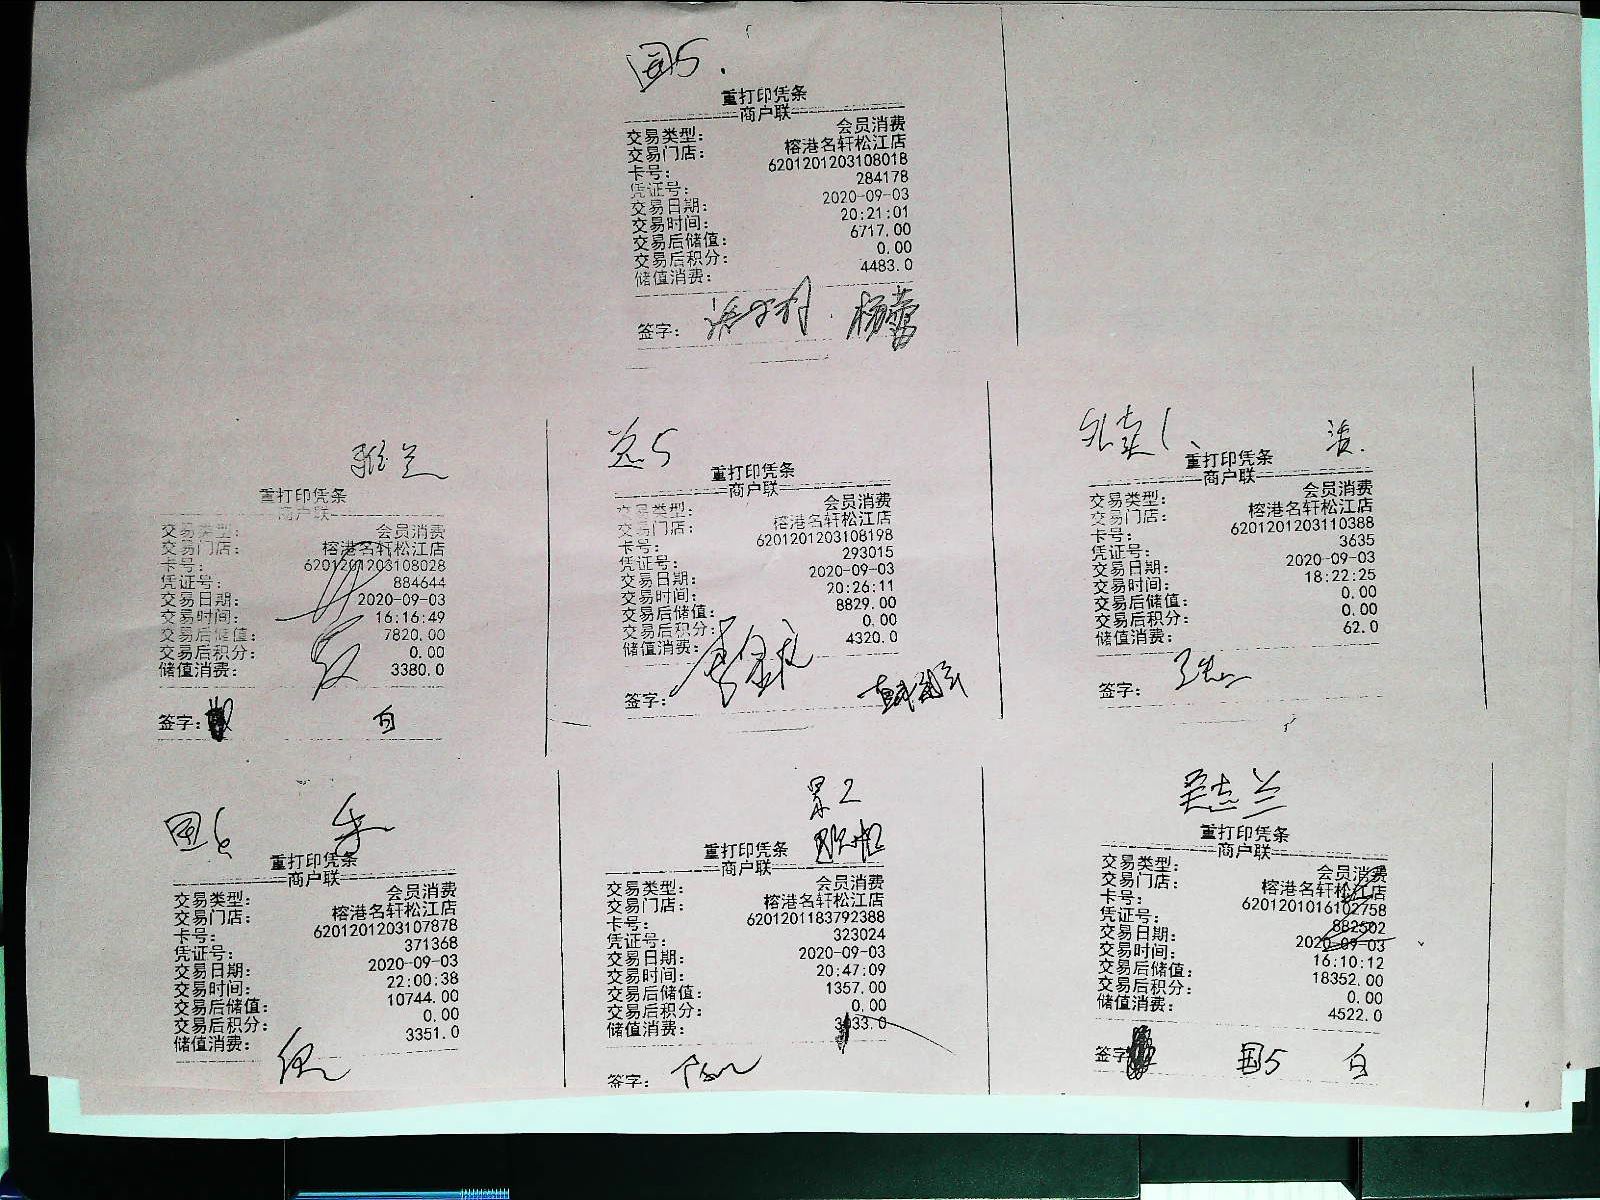 国5.
重打印凭条
商户联
交易类型: 会员消费
交易门店: 榕港名轩松江店
卡号: 6201201203108018
凭证号: 284178
交易日期: 2020-09-03
交易时间: 20:21:01
交易后储值: 6717.00
交易后积分: 0.00
储值消费: 4483.0
签字: 杨蕾
雅兰
重打印凭条
商户联
交易类型: 会员消费
交易门店: 榕港名轩松江店
卡号: 6201201203108028
凭证号: 884644
交易日期: 2020-09-03
交易时间: 16:16:49
交易后储值: 7820.00
交易后积分: 0.00
储值消费: 3380.0
签字: 白
重打印凭条
商户联
交易类型: 会员消费
交易门店: 榕港名轩松江店
卡号: 6201201203108198
凭证号: 293015
交易日期: 2020-09-03
交易时间: 20:26:11
交易后储值: 8829.00
交易后积分: 0.00
储值消费: 4320.0
签字:
外卖1
重打印凭条
商户联
交易类型: 会员消费
交易门店: 榕港名轩松江店
卡号: 6201201203110388
凭证号: 3635
交易日期: 2020-09-03
交易时间: 18:22:25
交易后储值: 0.00
交易后积分: 0.00
储值消费: 62.0
签字:
国6 朱
重打印凭条
商户联
交易类型: 会员消费
交易门店: 榕港名轩松江店
卡号: 6201201203107878
凭证号: 371368
交易日期: 2020-09-03
交易时间: 22:00:38
交易后储值: 10744.00
交易后积分: 0.00
储值消费: 3351.0
累2
重打印凭条
商户联
交易类型: 会员消费
交易门店: 榕港名轩松江店
卡号: 6201201183792388
凭证号: 323024
交易日期: 2020-09-03
交易时间: 20:47:09
交易后储值: 1357.00
交易后积分: 0.00
储值消费: 3033.0
签字:
吴志兰
重打印凭条
商户联
交易类型: 会员消费
交易门店: 榕港名轩松江店
卡号: 6201201016102758
凭证号: 882502
交易日期: 2020-09-03
交易时间: 16:10:12
交易后储值: 18352.00
交易后积分: 0.00
储值消费: 4522.0
签字 国5 白